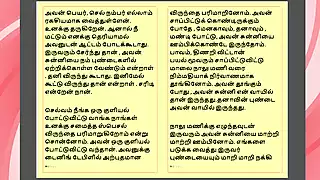 அவன் பெயர், செல் நம்பர் எல்லாம்
ரகசியமாக வைத்துள்ளேன்.
உனக்கு தருகிறேன், ஆனால் நீ
மட்டும் எனக்கு தெரியாமல்
அவனுடன் ஆட்டம் போடக்கூடாது.
இருவரும் சேர்ந்து தான், அவன்
சுன்னியை நம் புண்டைகளில்
ஏற்றிக்கொள்ள வேண்டும் என்றாள்
. தனி விருந்து கூடாது. இனிமேல்
கூட்டு விருந்து தான் என்றாள் , சரிடி
என்றேன் நான்.
செல்வம் நீங்க ஒரு குளியல்
போட்டுவிட்டு வாங்க நாங்கள்
உனக்கு சமைத்த ஸ்பெசல்
விருந்தை பரிமாறுகிறோம் என்று
சொன்னோம். அவன் ஒரு குளியல்
போட்டுவிட்டு வந்தான். அவனுக்கு
டைனிங் டேபிளில் அற்புதமான
விருந்தை பரிமாறினோம். அவன்
சாப்பிட்டுக் கொண்டிருக்கும்
போதே , மேனகாவும், நானாவும் ,
மண்டி போட்டு, அவன் சுன்னியை
ஊம்பிக்கொண்டே இருந்தோம்.
பாவம், திணறி விட்டான்
பயல் மூவரும் சாப்பிட்டுவிட்டு
மாலை நாலு மணி வரை
நிம்மதியாக நிர்வாணமாக
தூங்கினோம். அவன் தூங்கும்
போது , அவன் சுன்னி என் வாயில்
தான் இருந்தது.தனாவின் புண்டை
அவன் வாயில் இருந்தது.
நாலு மணிக்கு எழுந்தவுடன்
இருவரும் அவன் சுன்னியை மாற்றி
மாற்றி ஊம்பினோம். எங்களை
படுக்க போட்டு அவன் இருவர்
புண்டையையும் மாறி மாறி நக்கி